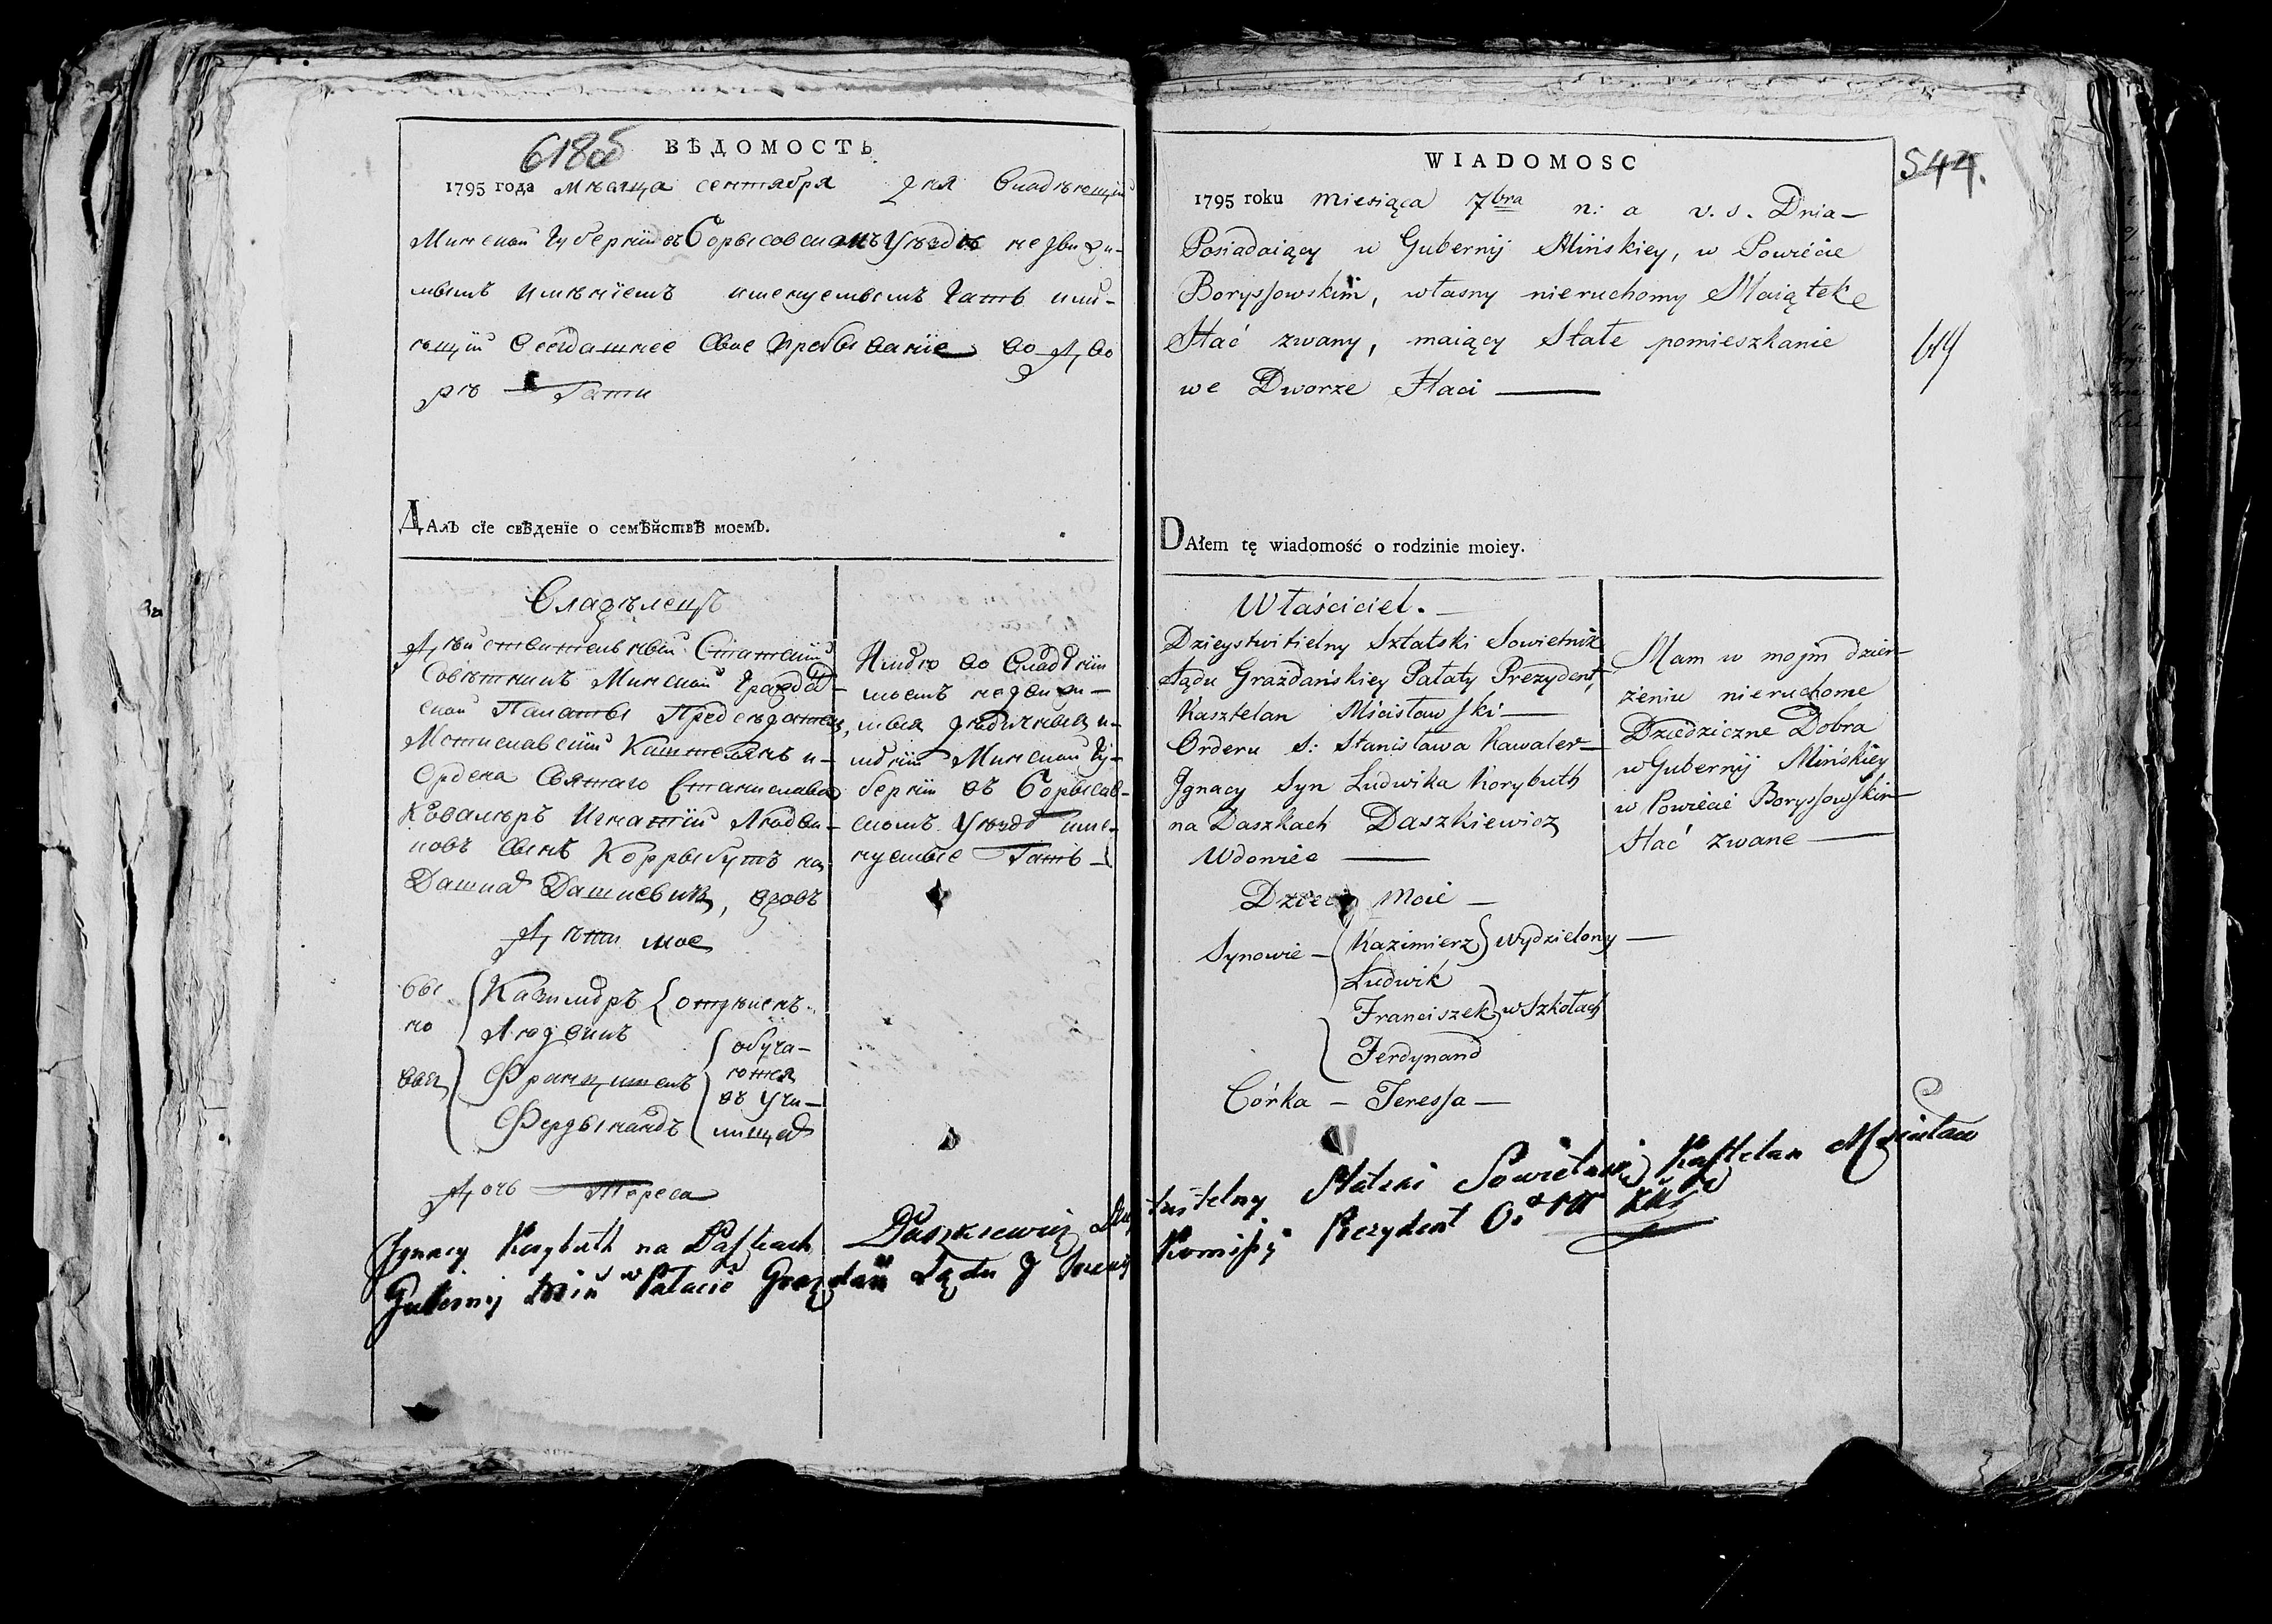 618об
ВѢДОМОСТЬ
1795 года мѣсяца сентября дня Владѣющій
Минской Губерніи въ Борысовскомъ Уѣздѣ недвижи-
мымъ имѣніемъ именуемымъ Гать имѣ-
ющій Всегдашнее Свое Пребываніе Во Дво
рѣ Гати
Далъ сіе свѣденіе о семѣйствѣ моемъ.
Владѣлецъ
Дѣйствительный Статскій
Совѣтникъ Минской Гражда-
ской Палаты Предсѣдатель,
Мстиславскій Каштелянъ и
Ордена Святаго Станислава
Кавалеръ Игнатій Людви-
ковъ Сынъ Коррыбутъ на
Дашках Дашкевичъ, вдовъ
Дѣти мое
Сы
но
вья
Казимѣръ отдѣленъ
Людвикъ
Францишекъ
Фердынандъ
обуча-
ются
въ Учи-
лищах
Дочь Тереса
Имѣю во владѣніи
моемъ недвижи-
мыя
мѣнія Минской Гу-
берніи въ Борысов-
скомъ Уѣзде име-
нуемые Гать
WIADOMOSC
544.
1795 roku miesiąca 7bra n: a v. s. Dnia
Posiadaiący w Gubernij Mińskiey, w Powiecie
Borysſowskim, własny nieruchomy Maiątek
Hać zwany, maiący Stałe pomieszkanie
we Dworze Haci
DAłem tę wiadomość o rodzinie moiey.
Właściciel.
Dzieystwitielny Sztatski Sowietnik
Sądu Grażdańskiey Pałaty Prezydent,
Kasztelan Mścisławſki
Orderu S: Stanisława Kawaler
Ignacy Syn Ludwika Korybuth
na Daszkach Daszkiewicz
Wdowiec
Dzieci Moie
Synowie – Kazimierz wydzielony
Ludwik
Franciszek w Szkołach
Ferdynand
Córka – Teresſa
Mam w mojm dzier-
żeniu nieruchome
Dziedziczne Dobra
w Gubernij Mińskiey
w Powiecie Borysſowſkim
Hać zwane
Ignacy Korybuth na Daſzkach Daszkiewicz Dzieystwitelny Statski Sowietnik Kaſztelan Mścisław
Gubernij Miń w Palacie Grażdań Sądu Prezydent